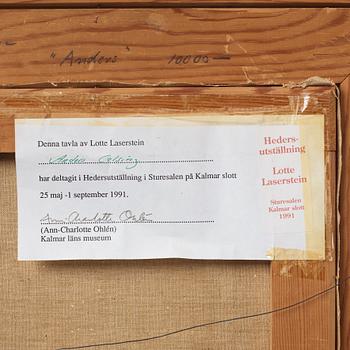 "Anders" 10000 —
Denna tavla av Lotte Laserstein
Anders
har deltagit i Hedersutställning i Sturesalen på Kalmar slott
25 maj -1 september 1991.
Ann-Charlotte Ohlén
(Ann-Charlotte Ohlén)
Kalmar läns museum
Heders-
utställning
Lotte
Laserstein
Sturesalen
Kalmar slott
1991